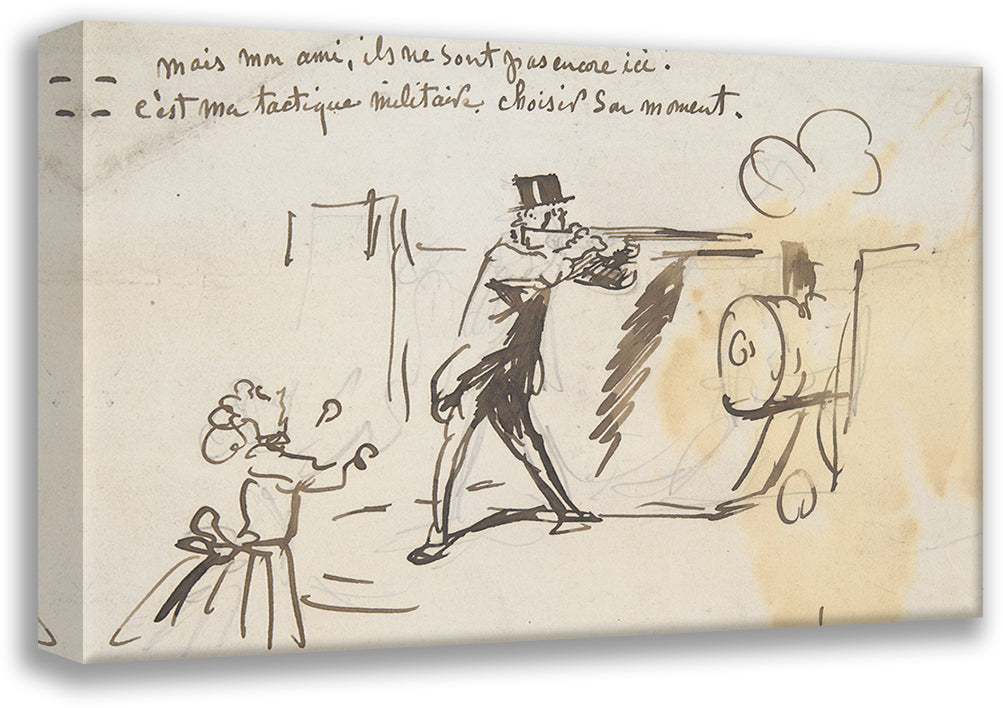 — — mais mon ami, ils ne sont pas encore ici.
— — c'est ma tactique militaire choisir son moment.